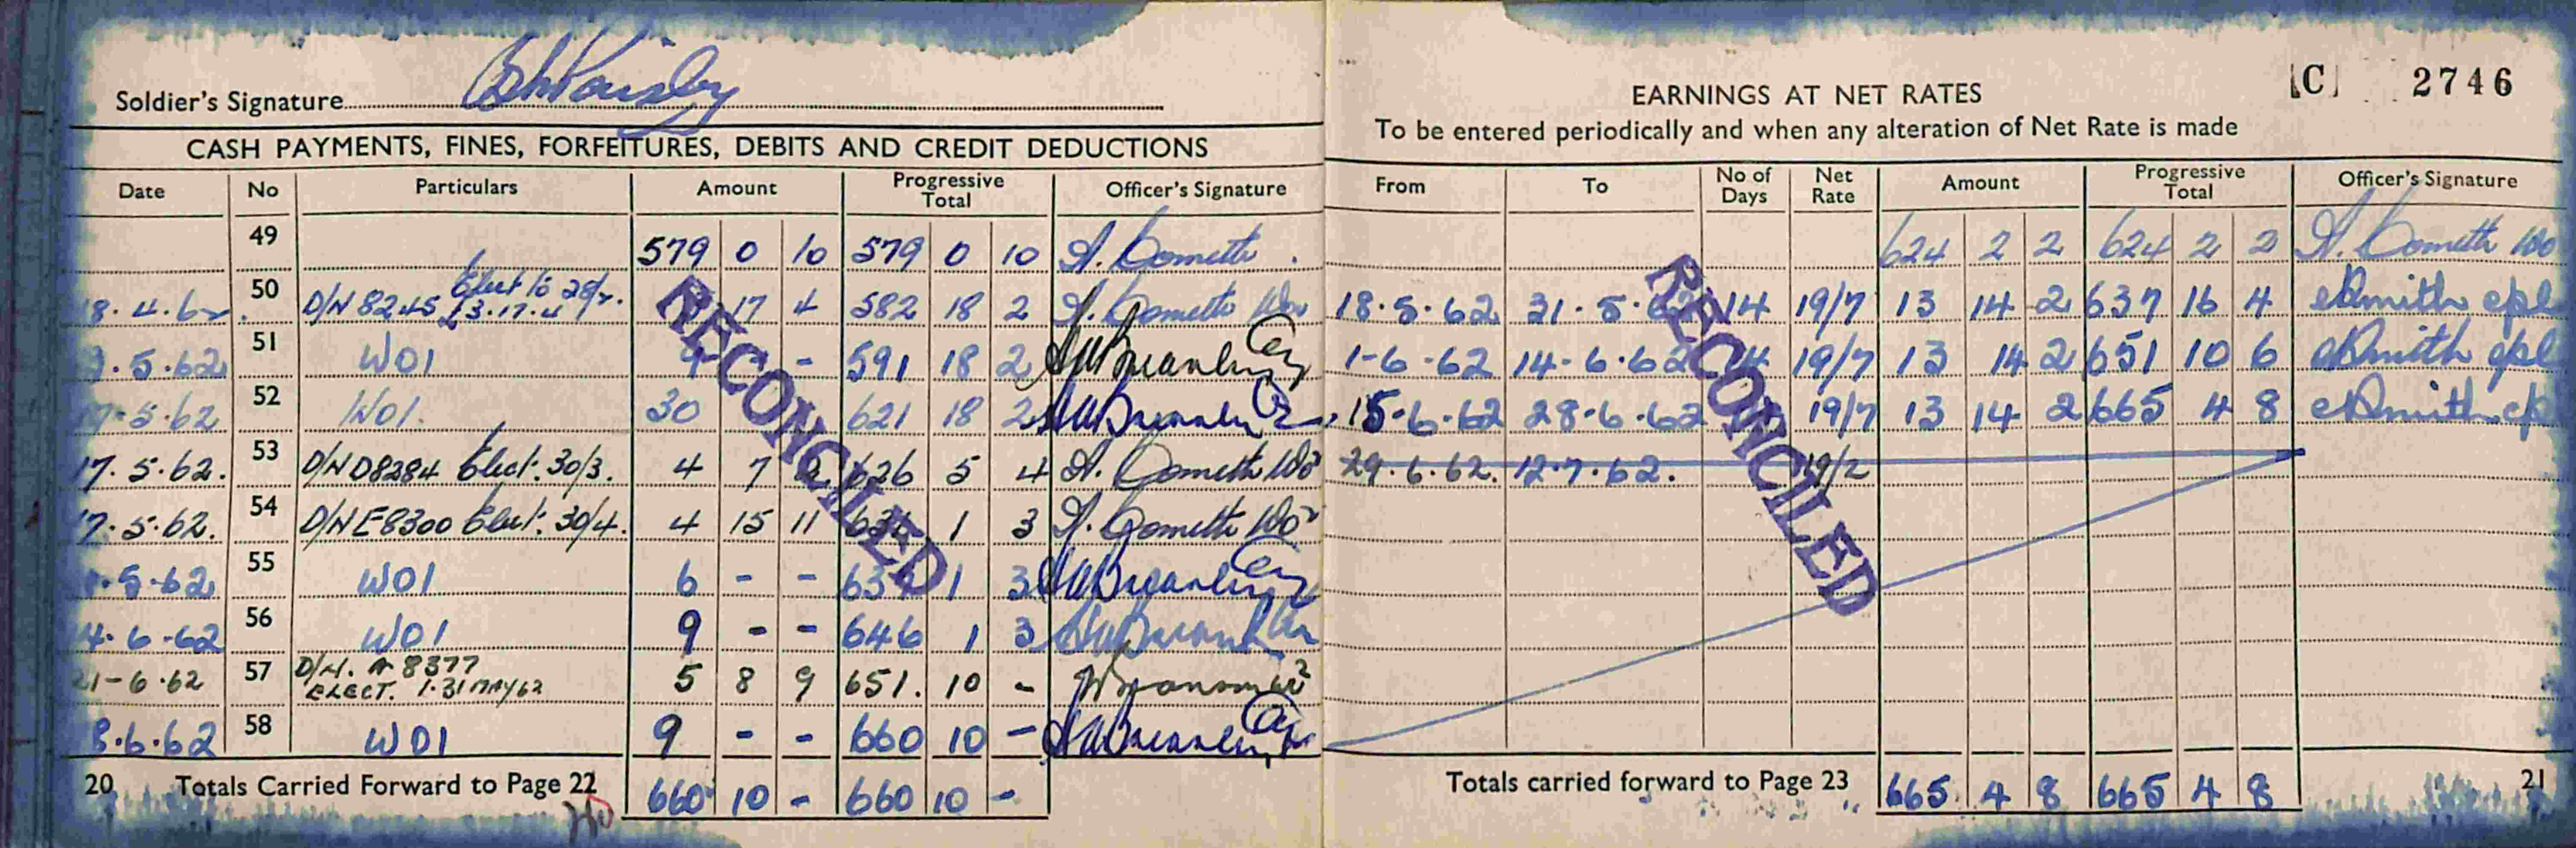 Soldier's Signature
CASH PAYMENTS, FINES, FORFEITURES, DEBITS AND CREDIT DEDUCTIONS
Date No Particulars Amount Progressive Total Officer's Signature
49 579 0 10 579 0 10
8.4.62 50 D/N 8245 Elect to 28/2. £3.17.4 17 4 582 18 2
.5.62 51 W01 9 - 591 18 2
.5.62 52 W01. 30 621 18 2
17.5.62. 53 D/N D8284 Elect. 30/3. 4 7 2 626 5 4
17.5.62. 54 D/N E8300 Elect. 30/4. 4 15 11 1 3
.5.62 55 W01 6 - - 1 3
4.6.62 56 W01 9 - - 646 1 3
21-6.62 57 D/N. A 8377
ELECT. 1-31 MAY 62 5 8 9 651. 10 -
8.6.62 58 W01 9 - - 660 10 -
20 Totals Carried Forward to Page 22 660 10 - 660 10 -
RECONCILED
[C] 2746
EARNINGS AT NET RATES
To be entered periodically and when any alteration of Net Rate is made
From To No of Days Net Rate Amount Progressive Total Officer's Signature
624 2 2 624 2 2
18.5.62 31.5.62 14 19/7 13 14 2 637 16 4 Smith cpl
1-6-62 14-6.62 14 19/7 13 14 2 651 10 6 Smith cpl
15-6.62 28.6.62 19/7 13 14 2 665 4 8 Smith cpl
29.6.62. 12.7.62. 19/2
RECONCILED
Totals carried forward to Page 23 665 4 8 665 4 8 21